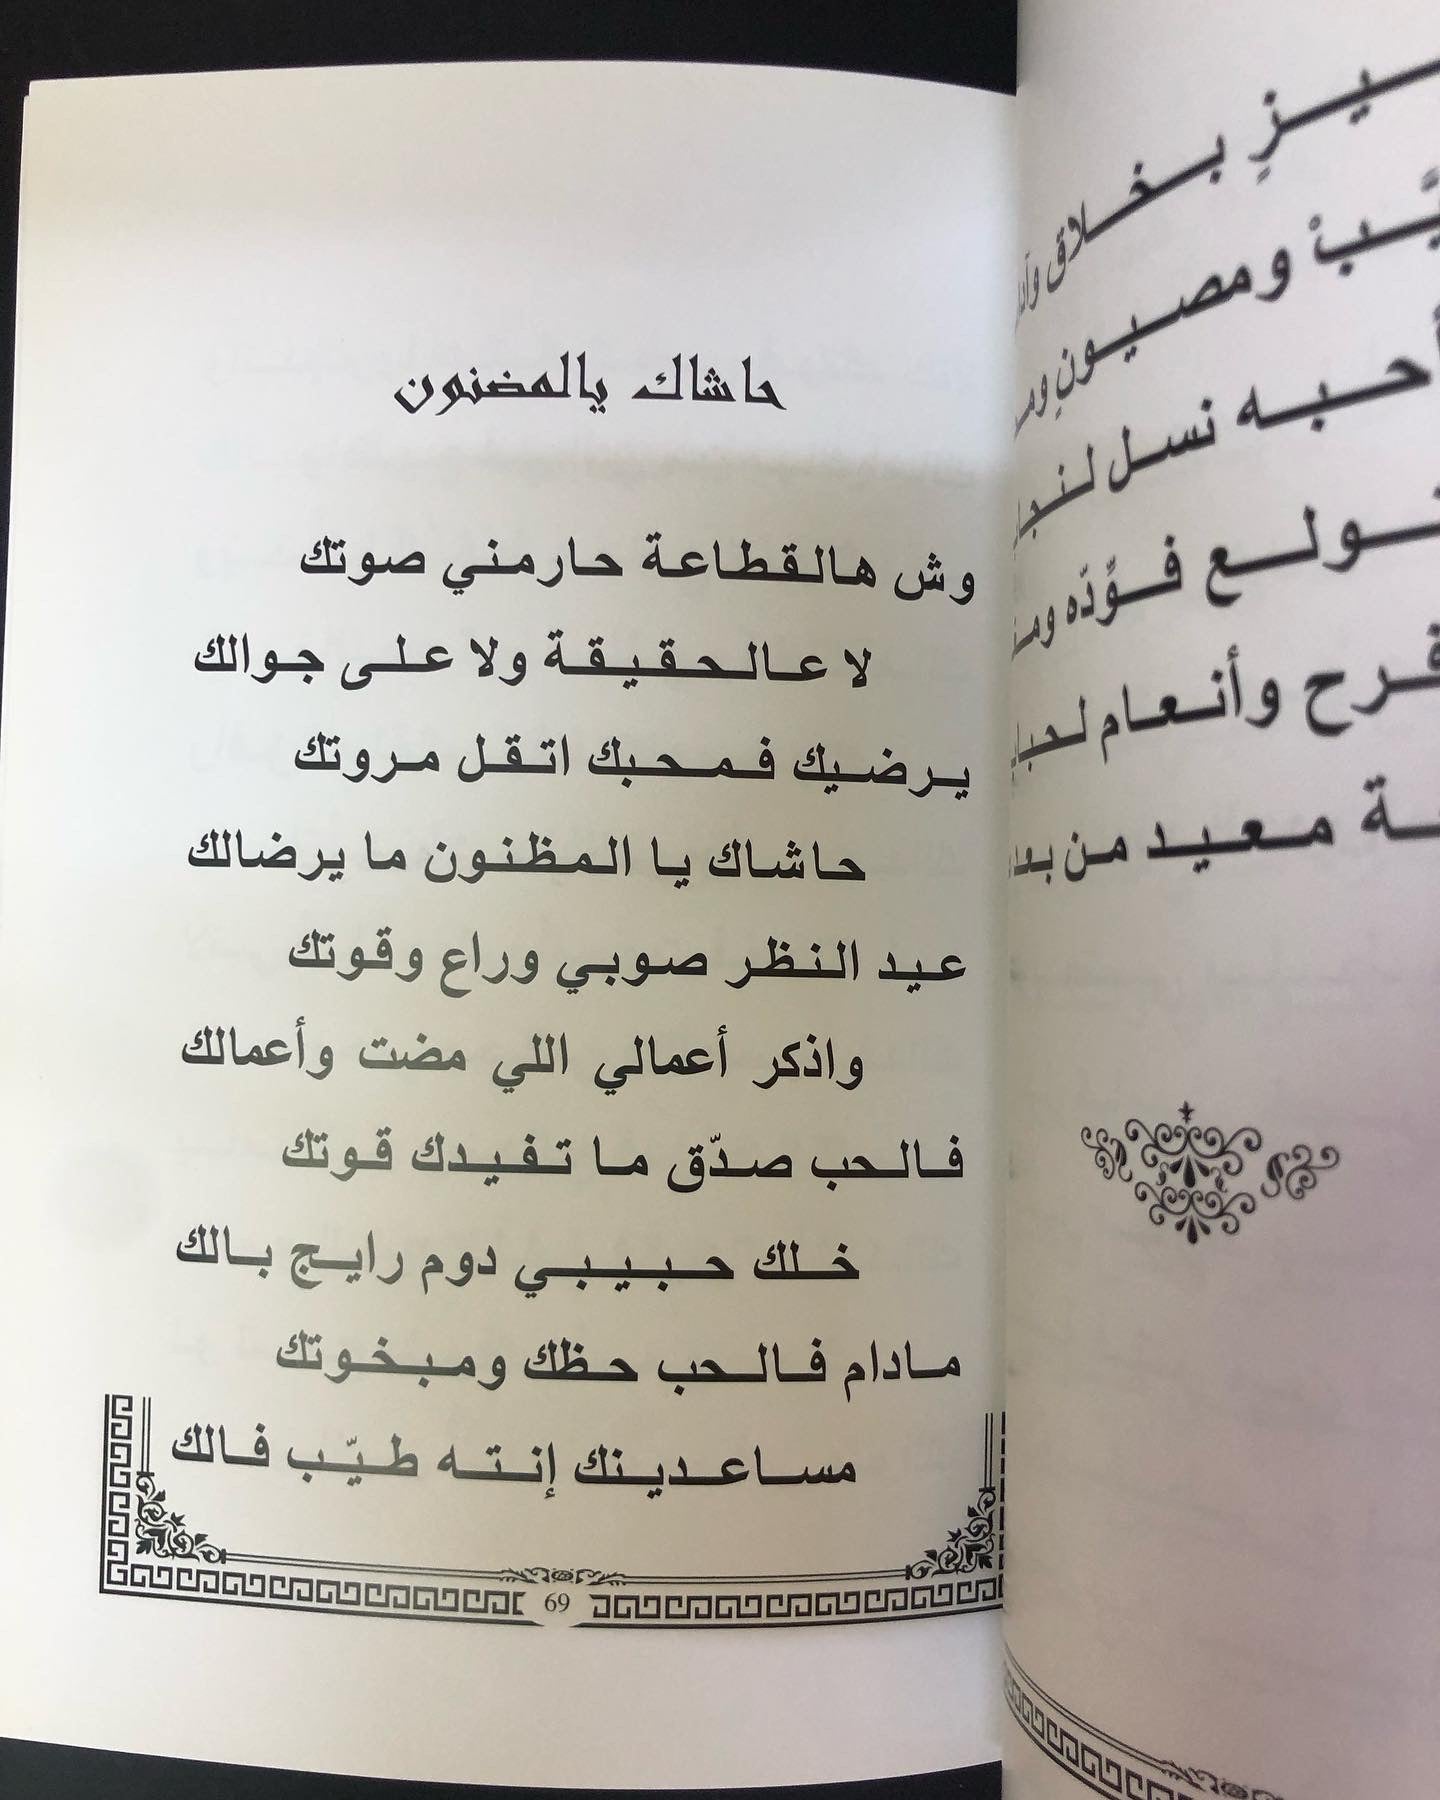 حاشاك يالمضنون
وش هالقطاعة حارمني صوتك
لا عالحقيقة ولا على جوالك
يرضيك فمحبك اتقل مروتك
حاشاك يا المظنون ما يرضالك
عيد النظر صوبي وراع وقوتك
واذكر أعمالي اللي مضت وأعمالك
فالحب صدّق ما تفيدك قوتك
خلك حبيبي دوم رايج بالك
مادام فالحب حظك ومبخوتك
مساعدينك إنته طيّب فالك
69
بخلاق
ومصيونٍ
أحبه نسل
فوّده
وأنعام
معيد من